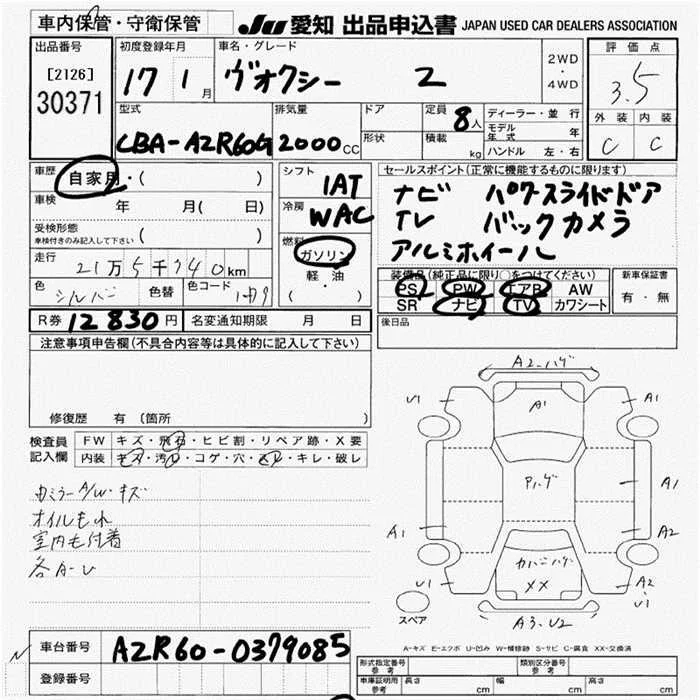 車内保管・守衛保管
JU 愛知 出品申込書 JAPAN USED CAR DEALERS ASSOCIATION
出品番号
[2126]
30371
初度登録年月
17 1 月
車名・グレード
ヴォクシー Z
2WD
・
4WD
評価点
3.5
外装 内装
C C
型式
CBA-AZR60G
排気量
2000 CC
ドア
形状
定員 8人
積載 kg
ディーラー・並行
モデル年式 年
ハンドル 左・右
車歴 自家用・( )
車検 年 月( 日)
受検形態
車検付きのみ記入して下さい ( )
走行 21万5千740km
色 シルバー 色替 色コード
R券 12830円 名変通知期限 月 日
シフト
IAT
冷房
WAC
燃料
ガソリン
軽・油
( ・ )
セールスポイント(正常に機能するものに限ります)
ナビ パワースライドドア
TV バックカメラ
アルミホイール
装備品(純正品に限り○をつけてください)
PS PW エアB AW
SR ナビ TV カワシート
新車保証書
有・無
後日品
注意事項申告欄(不具合内容等は具体的に記入して下さい)
修復歴 有(箇所 )
検査員記入欄
FW キズ・飛石・ヒビ割・リペア跡・X要
内装 キズ・汚レ・コゲ・穴・スレ・キレ・破レ
カミラーA/W・キズ
オイルもれ
室内も付着
各A-U
A2-ハゲ
U1
A1
A1
Pハゲ
A1
A1
A2
カハンハゲ
XX
U1
A2
U1
A3-U2
スペア
A-キズ E-エクボ U-凹み W-補修跡 S-サビ C-腐食 XX-交換済
車台番号 AZR60-0379085
登録番号
形式指定番号 参考
類別区分番号 参考
車庫証明用 参考
長さ cm 幅 cm 高さ cm